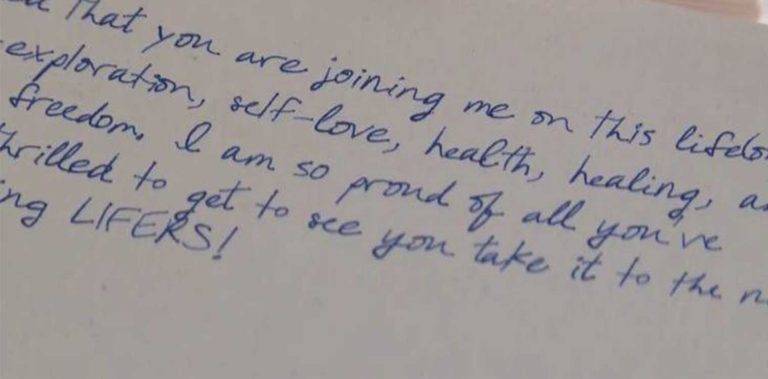 that you are joining me on this
exploration, self-love, health, healing,
freedom. I am so proud of all you've
to get to see you take it to the
LIFERS!